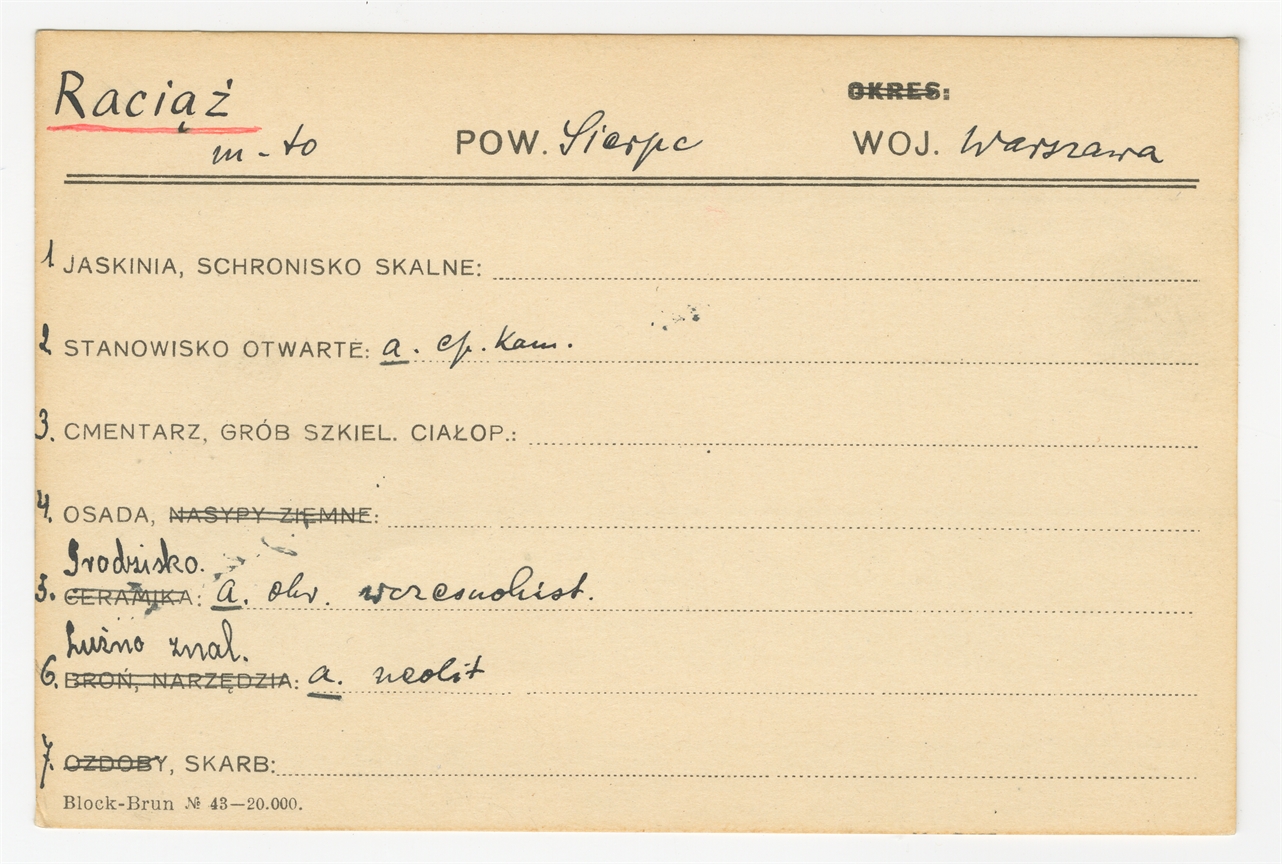 Raciąż
OKRES:
m-to POW. Sierpc WOJ. Warszawa
1 JASKINIA, SCHRONISKO SKALNE:
2 STANOWISKO OTWARTE: a. ep. kam.
3. CMENTARZ, GRÓB SZKIEL. CIAŁOP.:
4. OSADA, NASYPY ZIEMNE:
Grodzisko.
5. CERAMIKA: a. okr. wczesnohist.
Luźno znal.
6. BROŃ, NARZĘDZIA: a. neolit
7. OZDOBY, SKARB:
Block-Brun № 43—20.000.